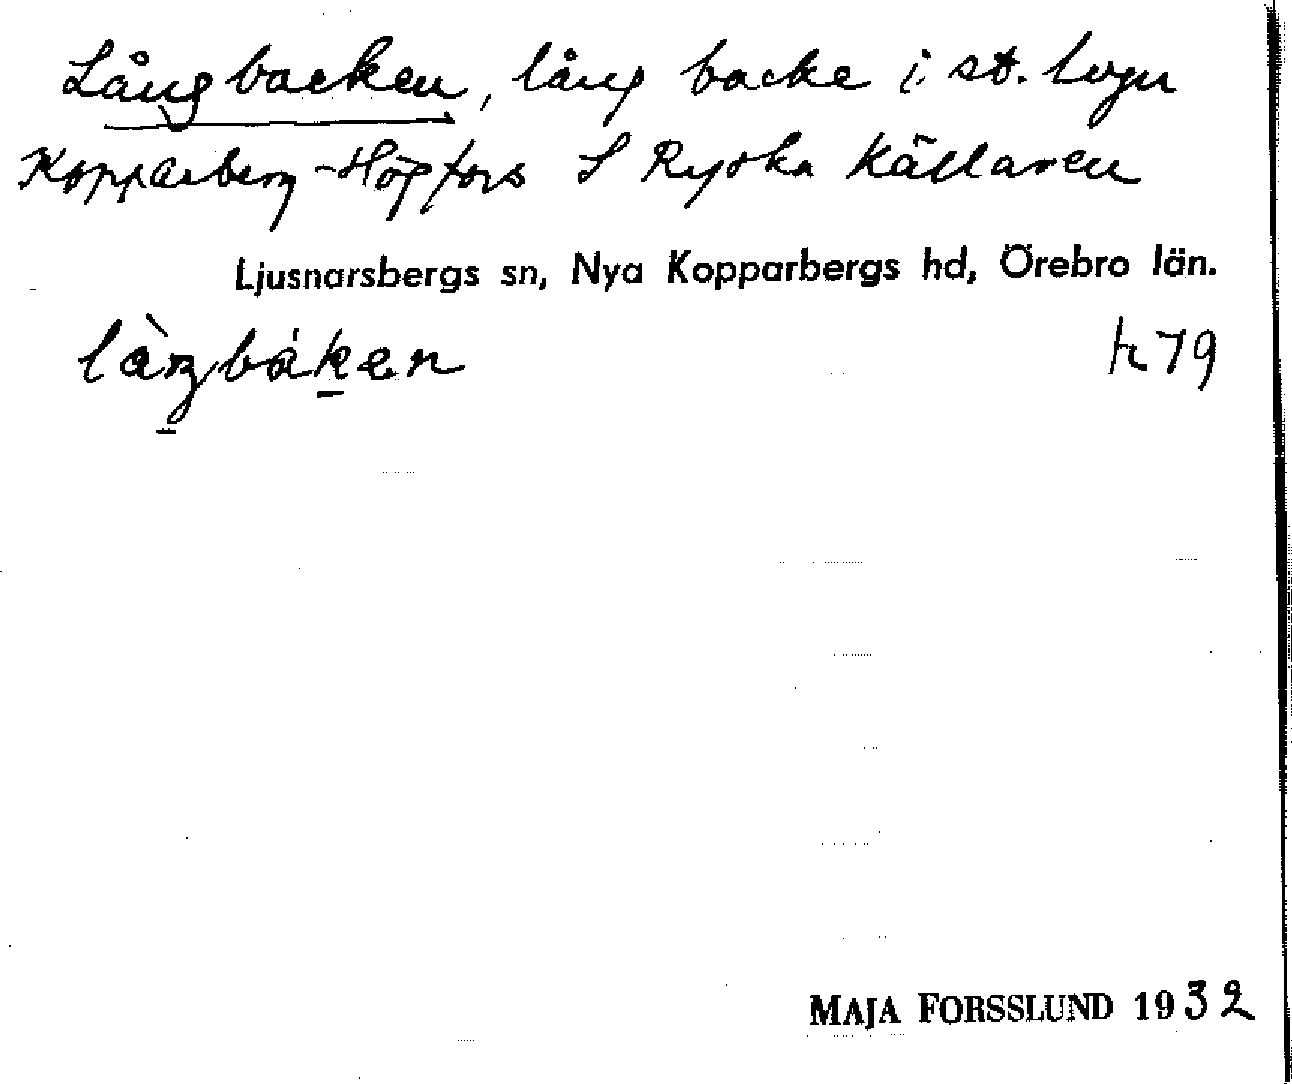 Långbacken, lång backe i st. vägen
Kopparberg-Högfors S Ryska Källaren
Ljusnarsbergs sn, Nya Kopparbergs hd, Örebro län.
79
MAJA FORSSLUND 1932